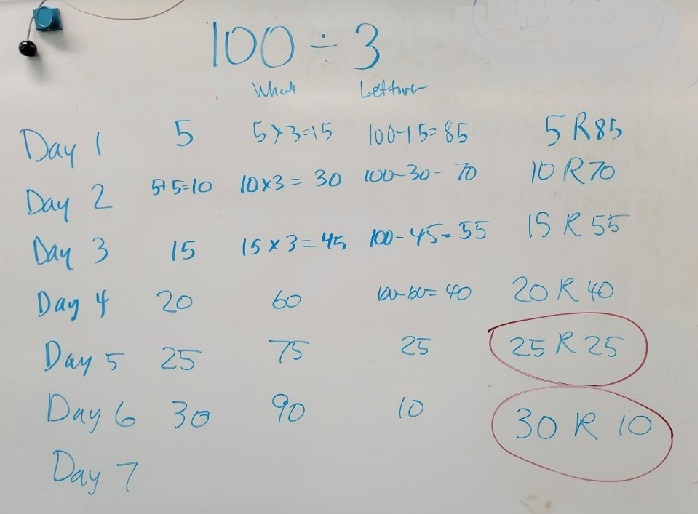 100 ÷ 3
Leftover
Day 1 5 5×3=15 100-15=85 5 R85
Day 2 5+5=10 10×3=30 100-30-70 10 R70
Day 3 15 15×3=45 100-45=55 15 R 55
Day 4 20 60 100-60=40 20 R 40
Day 5 25 75 25 25 R 25
Day 6 30 90 10 30 R 10
Day 7